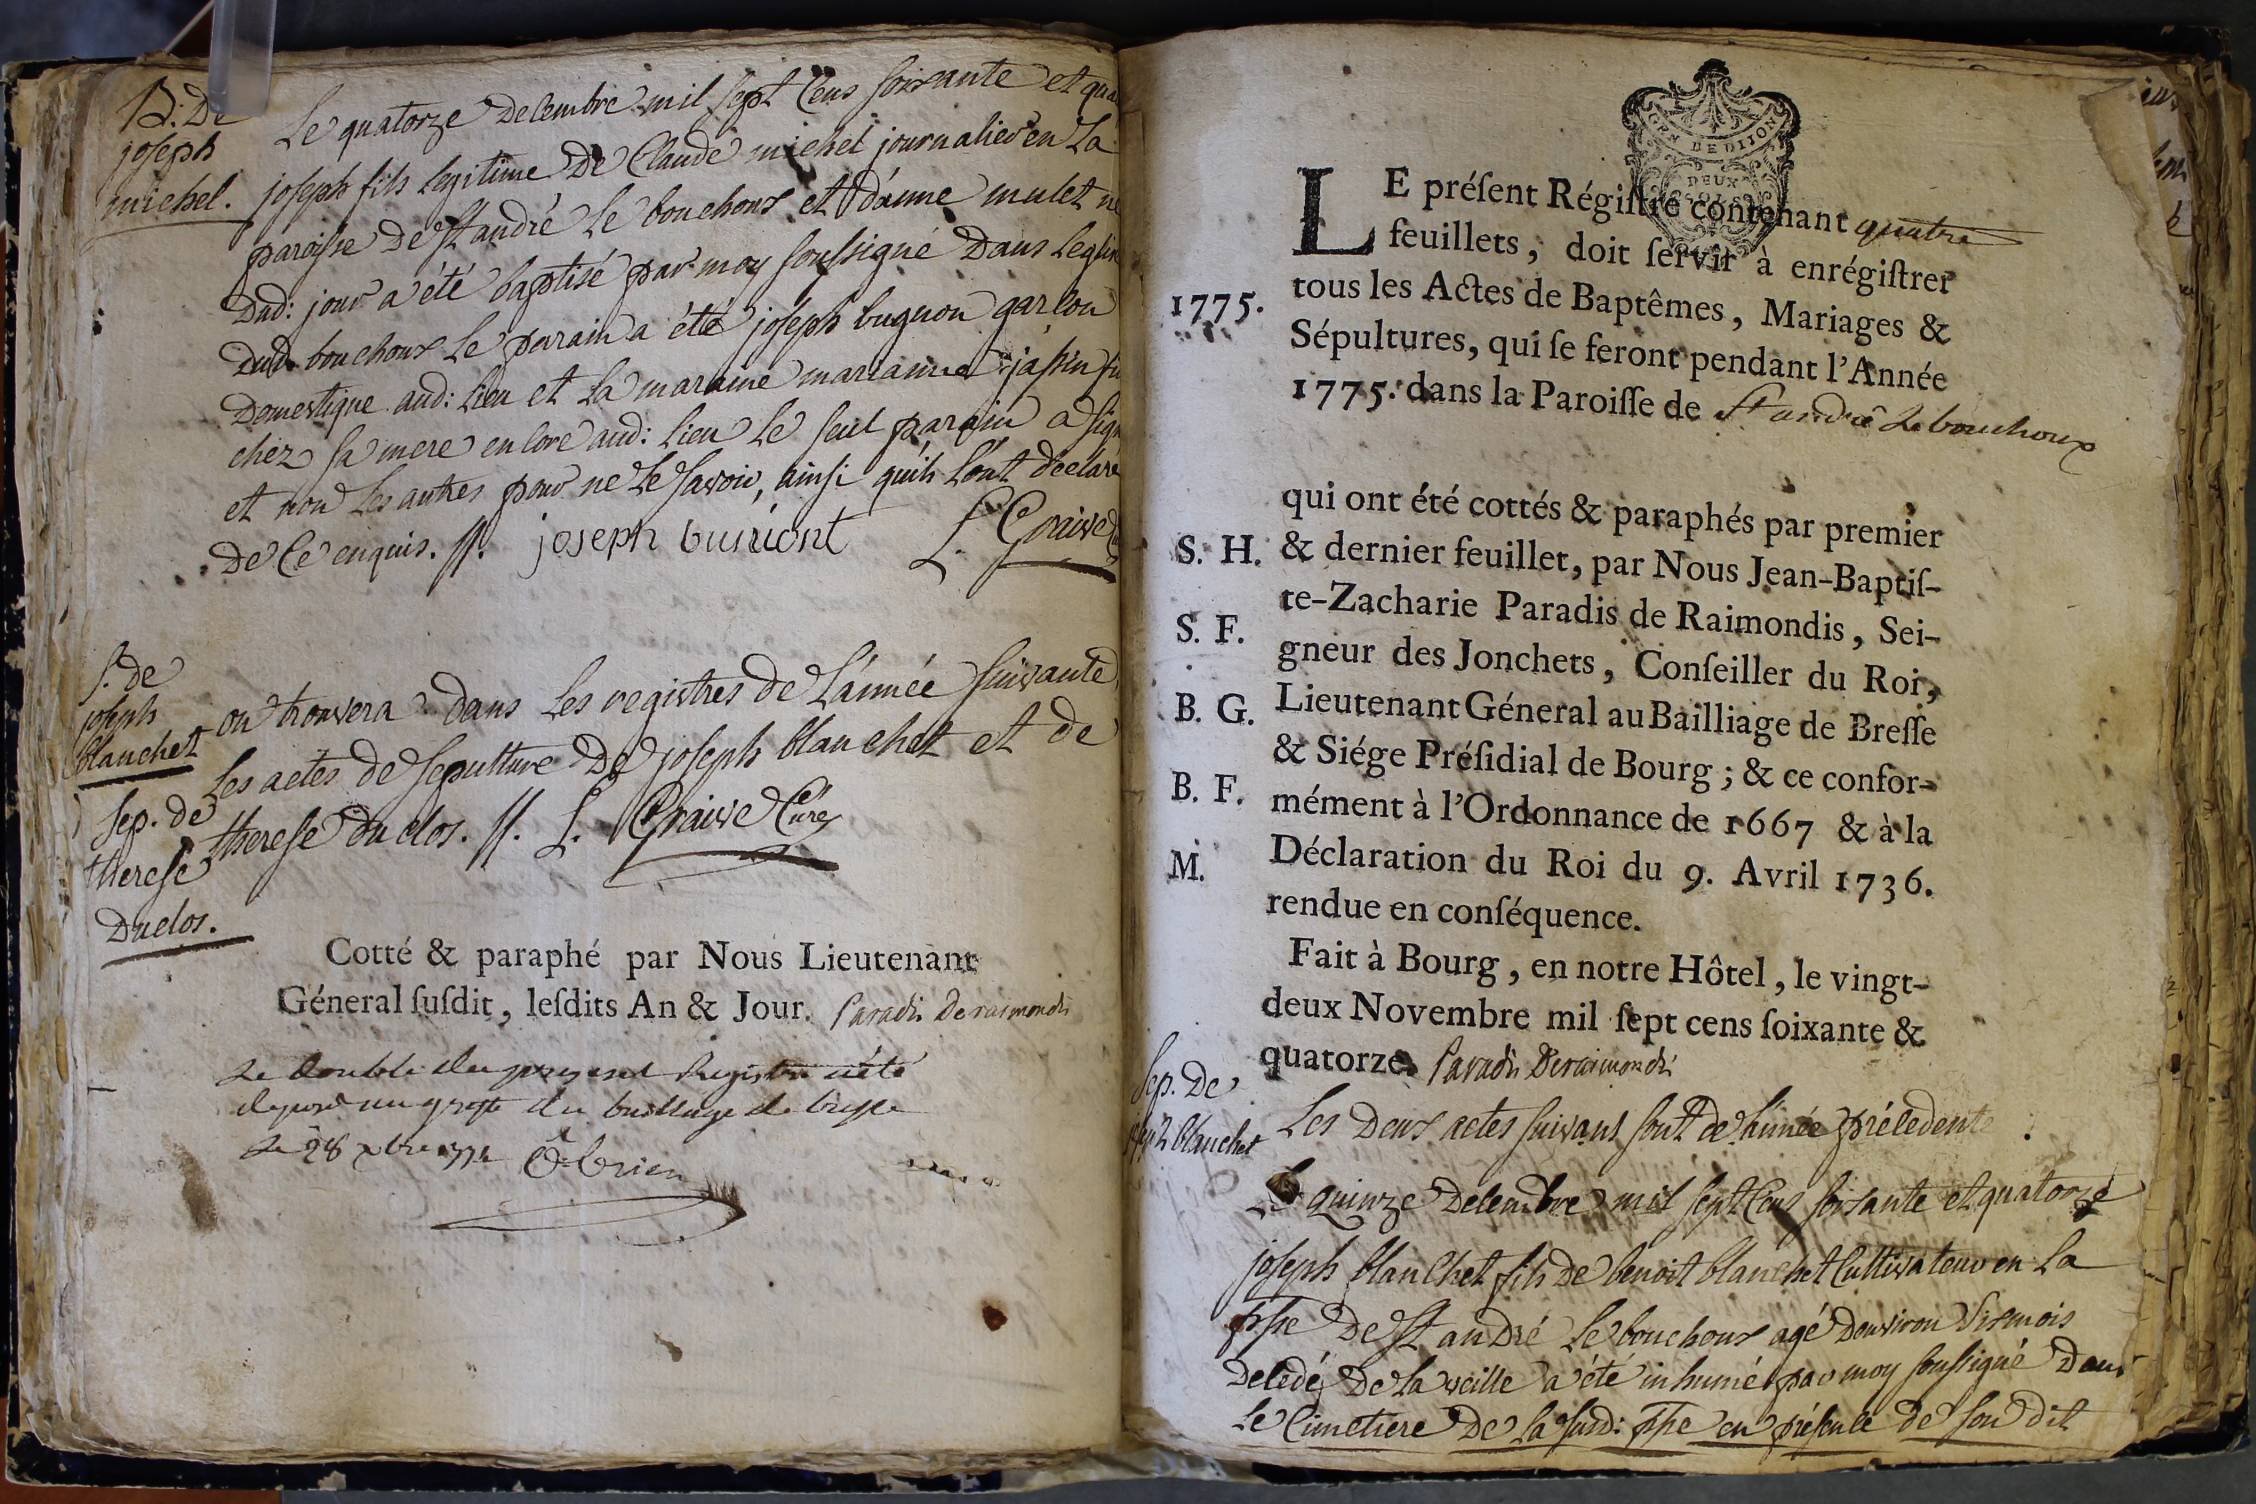 B. De
joseph
michel.
Le quatorze decembre mil sept Cens soixante et qua
joseph fils legitime De Claude michel journalier en La
paroisse De St andré Le bouchoux et d'anne mulet né
Dud: jour a été baptisé par moy soussigné Dans Leglise
Dud. bouchoux Le parain a été joseph bugnon garcon
Domestique aud: Lieu et La maraine marianne
chez sa mere encore aud: Lieu Le seul parain a sign
et non Les autres pour ne Le savoir, ainsi quils L'ont declaré
De Ce enquis. //. joseph buniont L. Graive
S. de
joseph
blanchet
on trouvera dans Les registres de L'année suivante
Les actes de sepulture De joseph blanchet et de
therese duclos. //. L. Graive Curé
Sep. de
therese
Duclos.
Cotté & paraphé par Nous Lieutenant
Géneral ſuſdit, leſdits An & Jour. Paradis De raimondis
Le double du present Registre a été
deposé au greffe du bailliage de bresse
Le 28 xbre 1774 O-brien
GEN DE DIJON
DEUX
SOLS
LE préſent Régiſtre contenant quatre
feuillets, doit ſervir à enrégiſtrer
tous les Actes de Baptêmes, Mariages &
1775.
Sépultures, qui ſe feront pendant l'Année
1775. dans la Paroiſſe de St andré Le bouchoux
qui ont été cottés & paraphés par premier
S. H. & dernier feuillet, par Nous Jean-Baptiſ-
te-Zacharie Paradis de Raimondis, Sei-
S. F. gneur des Jonchets, Conſeiller du Roi,
B. G. Lieutenant Géneral au Bailliage de Breſſe
& Siége Préſidial de Bourg; & ce confor-
B. F. mément à l'Ordonnance de 1667 & à la
M. Déclaration du Roi du 9. Avril 1736.
rendue en conſéquence.
Fait à Bourg, en notre Hôtel, le vingt-
deux Novembre mil ſept cens ſoixante &
quatorze. Paradis De raimondis
Sep. De
blanchet
Les Deux actes suivans sont de L'année précedente
Le quinze Decembre mil sept Cens soixante et quatorze
joseph blanchet fils De benoit blanchet Cultivateur en La
psse De St andré Le bouchoux agé Denviron six mois
Decedé De La veille a été inhumé par moy soussigné Dans
Le Cimetiere De La susd: psse en présence de son dit